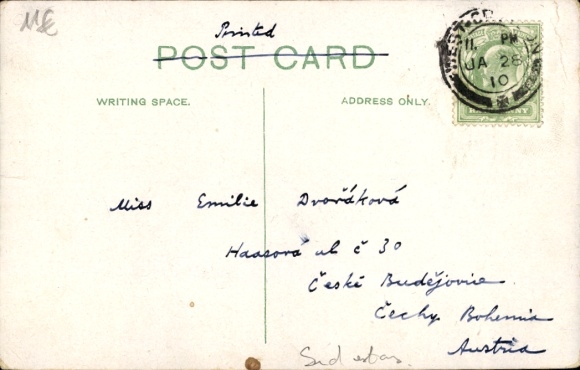 Printed
POST CARD
11 PM
JA 28
10
WRITING SPACE.
ADDRESS ONLY.
Miss Emilie Dvořáková
Haasová ul č 30
České Budějovice
Čechy Bohemia
Austria